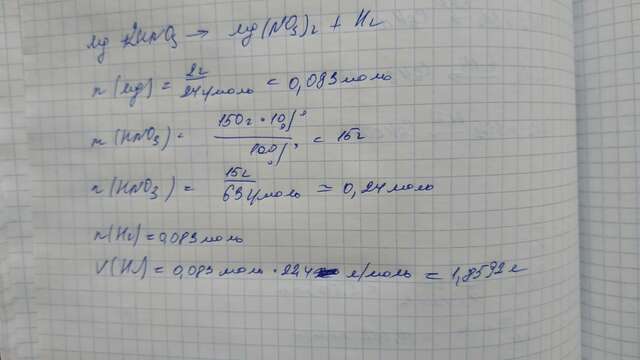 Mg 2HNO₃ → Mg(NO₃)₂ + H₂
n(Mg) = 2г / 24г/моль = 0,083 моль
m(HNO₃) = 150г · 10% / 100% = 15г
n(HNO₃) = 15г / 63г/моль = 0,24 моль
n(H₂) = 0,083 моль
V(H₂) = 0,083 моль · 22,4 л/моль = 1,8592 л